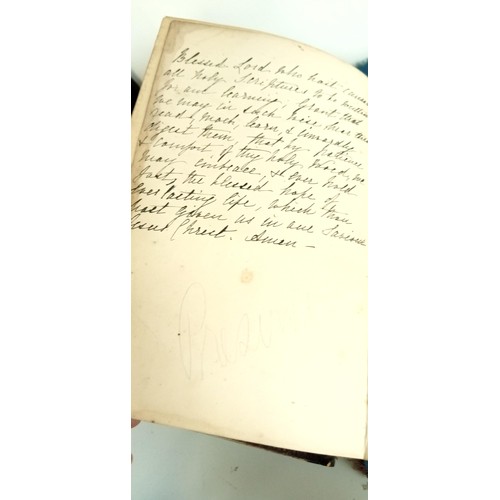 Blessed Lord who hast caused
all holy Scriptures to be written
for our learning; Grant that
we may in such wise hear them
read, mark, learn & inwardly
digest them, that by patience,
& comfort of thy holy Word, we
may embrace, & ever hold
fast, the blessed hope of
everlasting life, which thou
hast given us in our Saviour
Jesus Christ. Amen —